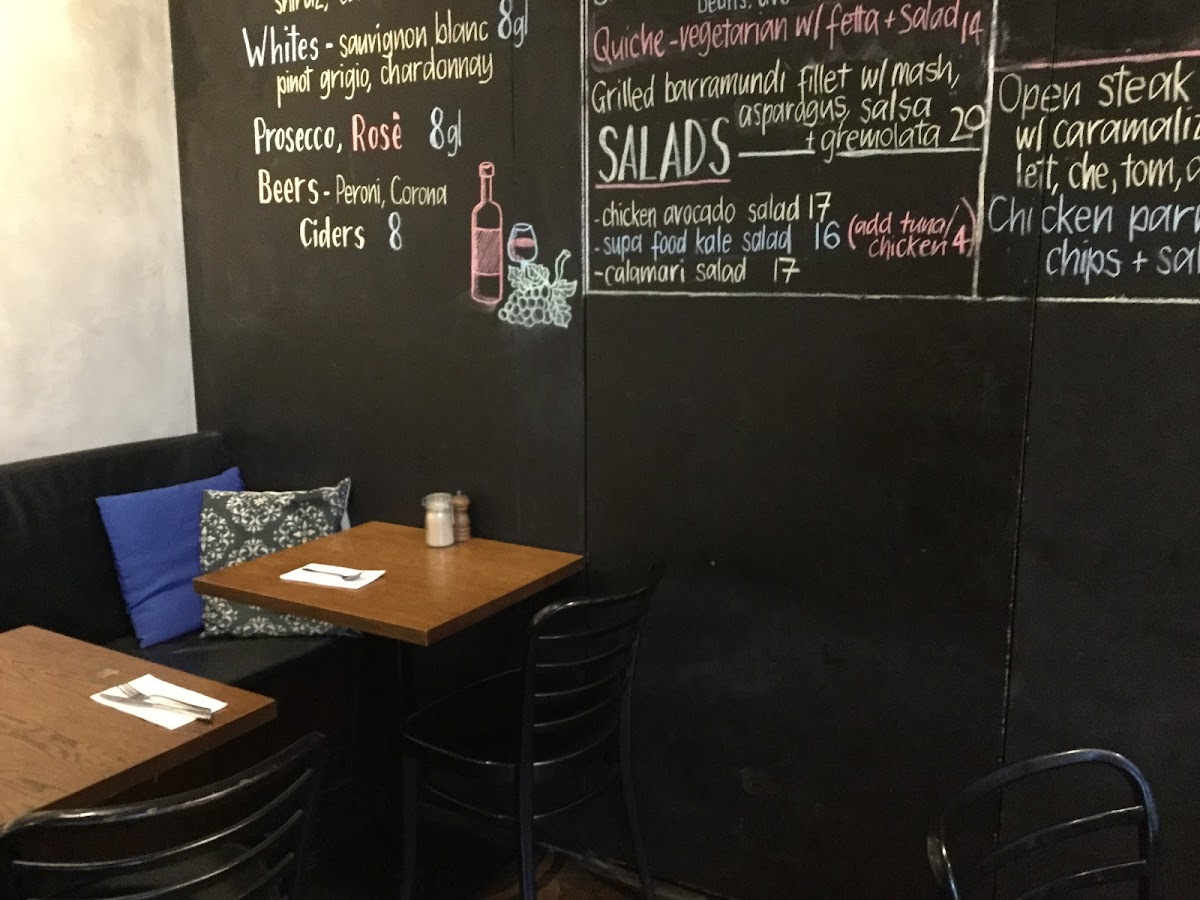 shiraz,
Whites - sauvignon blanc 8gl
pinot grigio, chardonnay
Prosecco, Rosè 8gl
Beers - Peroni, Corona
Ciders 8
Quiche - vegetarian w/ fetta + Salad 14
Grilled barramundi fillet w/ mash,
asparagus, salsa
+ gremolata 20
SALADS
- chicken avocado salad 17
- supa food kale salad 16 (add tuna/
chicken 4)
- calamari salad 17
Open steak
w/ caramaliz
lett, che, tom,
Chicken parm
chips + sal